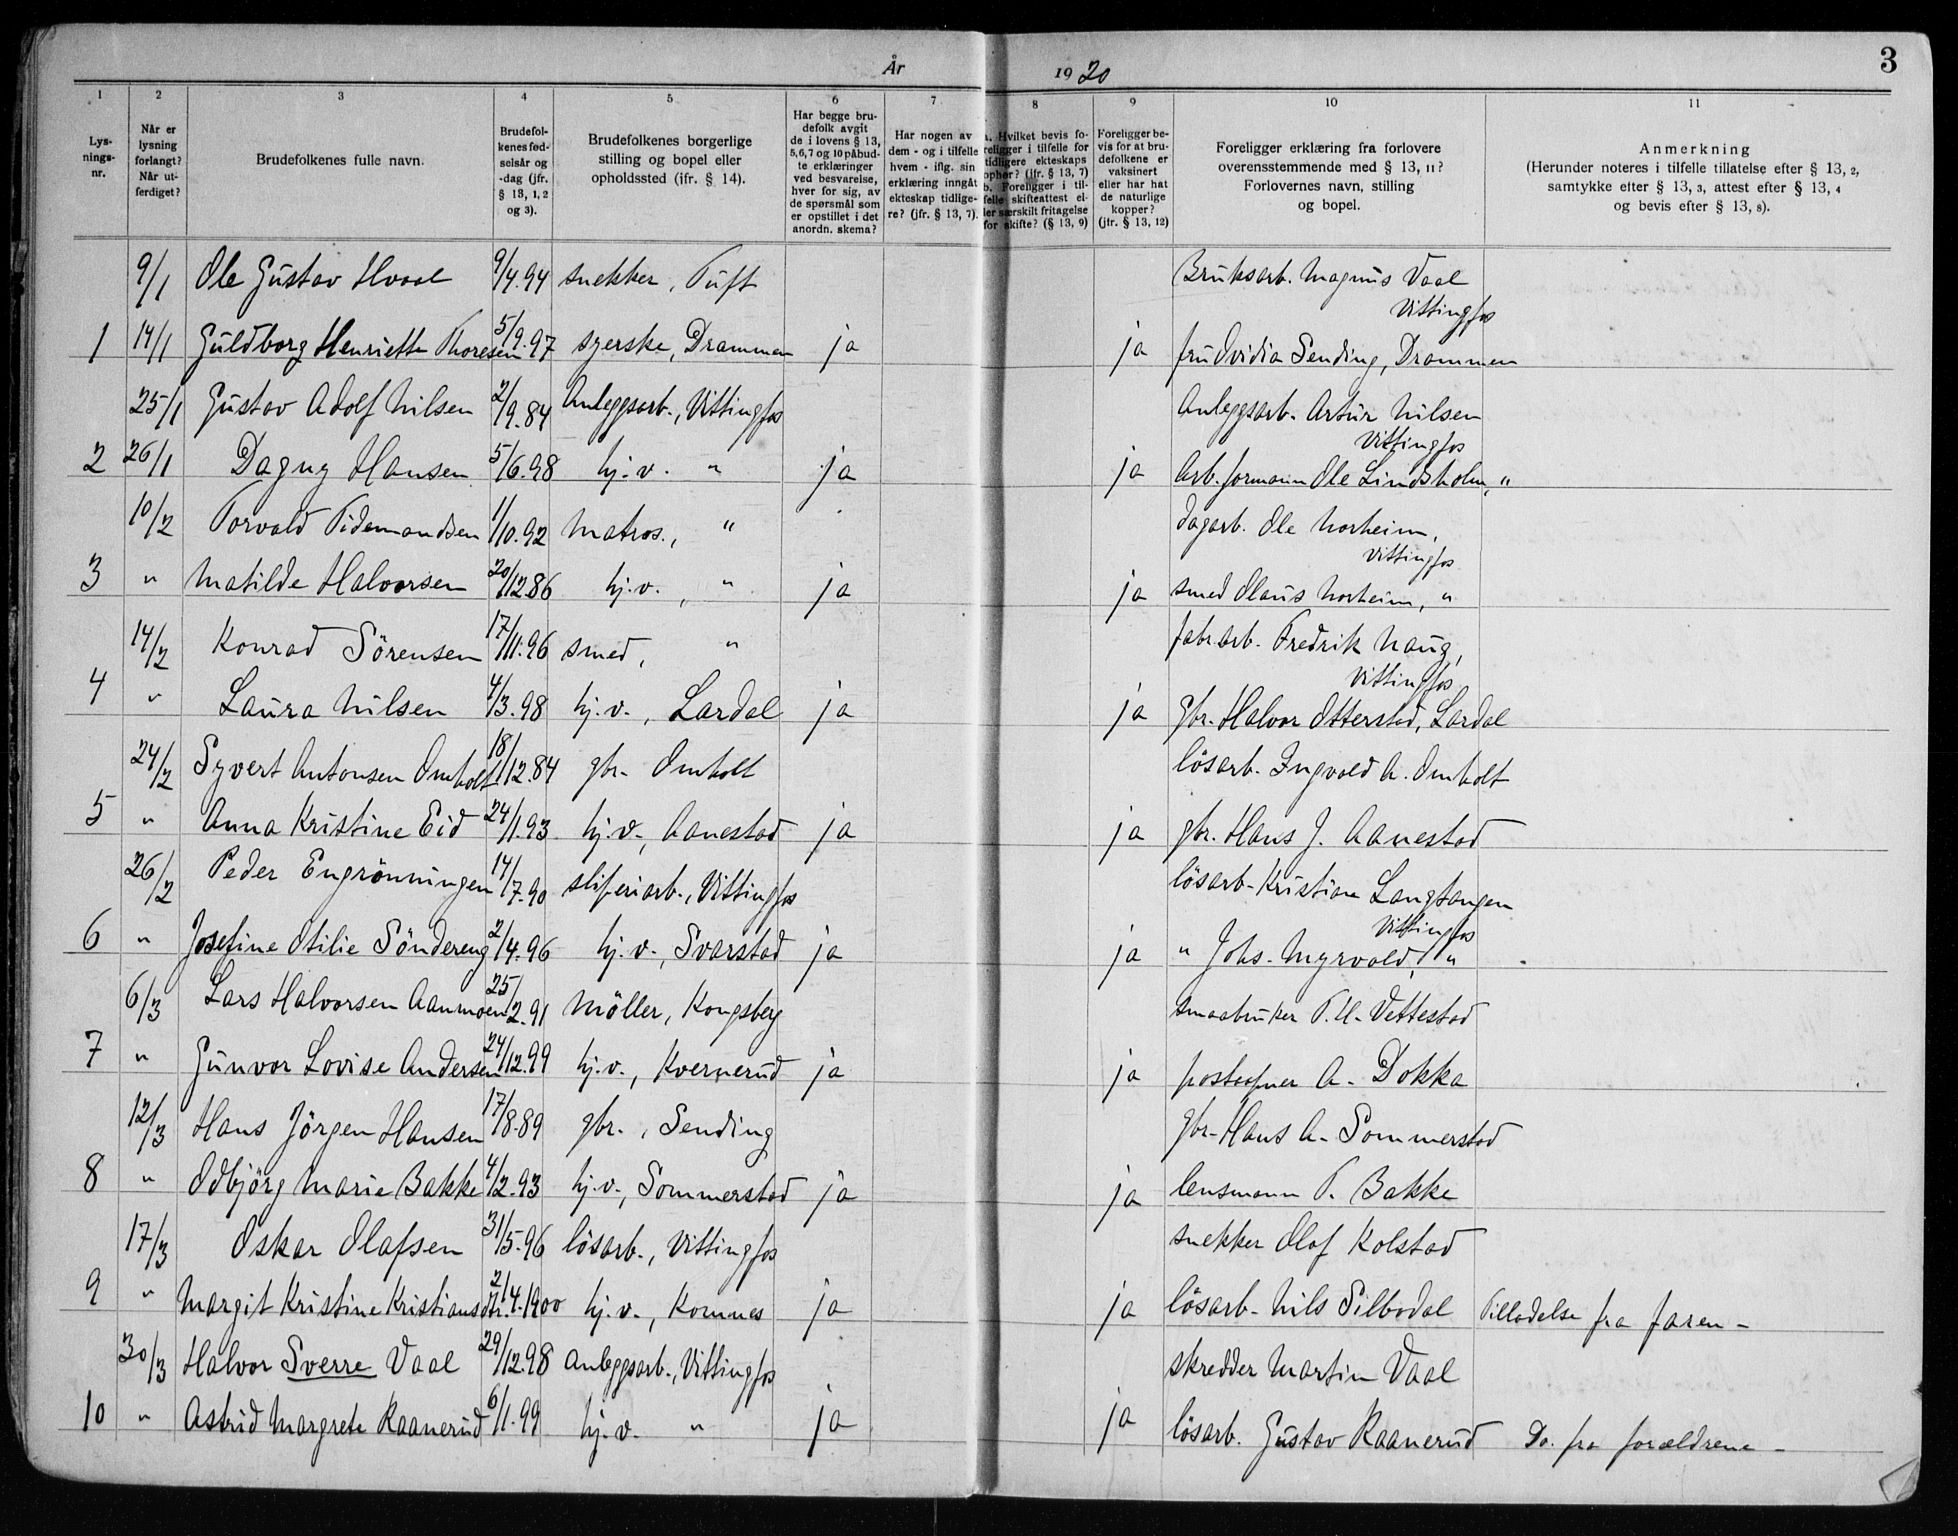 3
År 1920
1 2 3 4 5 6 7 8 9 10 11
Lysningsnr.
Når er lysning forlangt? Når utferdiget?
Brudefolkenes fulle navn.
Brudefolkenes fødselsår og -dag (jfr. § 13, 1, 2 og 3).
Brudefolkenes borgerlige stilling og bopel eller opholdssted (ifr. § 14).
Har begge brudefolk avgit de i lovens § 13, 5,6,7 og 10 påbudte erklæringer ved besvarelse, hver for sig, av de spørsmål som er opstillet i det anordn. skema?
Har nogen av dem - og i tilfelle hvem - iflg. sin erklæring inngåt ekteskap tidligere? (jfr. § 13, 7).
a. Hvilket bevis foreligger i tilfelle for tidligere ekteskaps ophør? (ifr. § 13, 7) b. Foreligger i tilfelle skifteattest eller særskilt fritagelse for skifte? (§ 13, 9)
Foreligger bevis for at brudefolkene er vaksinert eller har hat de naturlige kopper? (jfr. § 13, 12)
Foreligger erklæring fra forlovere overensstemmende med § 13, 11? Forlovernes navn, stilling og bopel.
Anmerkning (Herunder noteres i tilfelle tillatelse efter § 13, 2, samtykke efter § 13, 3, attest efter § 13, 4 og bevis efter § 13, 8).
9/1 Ole Gustav Hvaal 9/4.94 snekker, Tuft Bruksarb. Magnus Vaal Vittingfos
1 14/1 Guldborg Henriette Thoresen 5/9.97 syerske, Drammen ja ja fru Ovidia Sending, Drammen
25/1 Gustav Adolf Nilsen 2/9.84 Anleggsarb., Vittingfos Anleggsarb. Artur Nilsen Vittingfos
2 26/1 Dagny Hansen 5/6.98 hj.v. " ja ja Arb.formann Ole Lindsholm, "
10/2 Torvald Tidemandsen 1/10.92 Matros., " Dagarb. Ole Norheim, Vittingfos
3 " Matilde Halvorsen 20/12.86 hj.v. , " ja ja smed Olaus Norheim, "
14/2 Konrad Sörensen 17/11.96 smed, " fabr.arb. Fredrik Haug, Vittingfos
4 " Laura Nilsen 4/3.98 hj.v., Lardal ja ja gbr. Halvor Otterstad, Lardal
24/2 Syvert Antonsen Omholt 18/12.84 gbr. Omholt lösarb. Ingvald A. Omholt
5 " Anna Kristine Eid 24/1.93 hj.v., Aanestad ja ja gbr. Hans J. Aanestad
26/2 Peder Engrönningen 14/7.90 sliferiarb., Vittingfos lösarb. Kristian Langtangen Vittingfos
6 " Josefine Otilie Söndereng 2/4.96 hj.v., Svarstad ja ja " Johs. Myrvold, "
6/3 Lars Halvorsen Aanmoen 25/2.91 Möller, Kongsberg smaabruker T. H. Vettestad
7 " Gunvor Lovise Andersen 24/12.99 hj.v., Kvernerud ja ja postaapner A. Dokka
12/3 Hans Jörgen Hansen 17/8.89 gbr., Sending gbr. Hans A. Sommerstad
8 " Odbjörg Marie Bakke 4/2.93 hj.v., Sommerstad ja ja lensmann T. Bakke
17/3 Oskar Olafsen 31/5.96 lösarb., Vittingfos snekker Olof Kolstad
9 " Margit Kristine Kristiansdtr. 2/4.1900 hj.v., Komnes ja ja lösarb. Nils Silbodal Tilladelse fra faren -
30/3 Halvor Sverre Vaal 29/12.98 Anleggsarb., Vittingfos skredder Martin Vaal
10 " Astrid Margrete Raanerud 6/1.99 hj.v. " ja ja lösarb. Gustav Raanerud Do. fra forældrene -